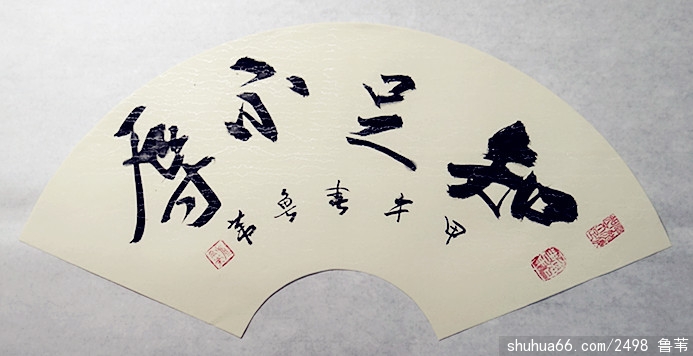 知足不辱
甲午春鲁苇
shuhua66.com/2498 鲁苇